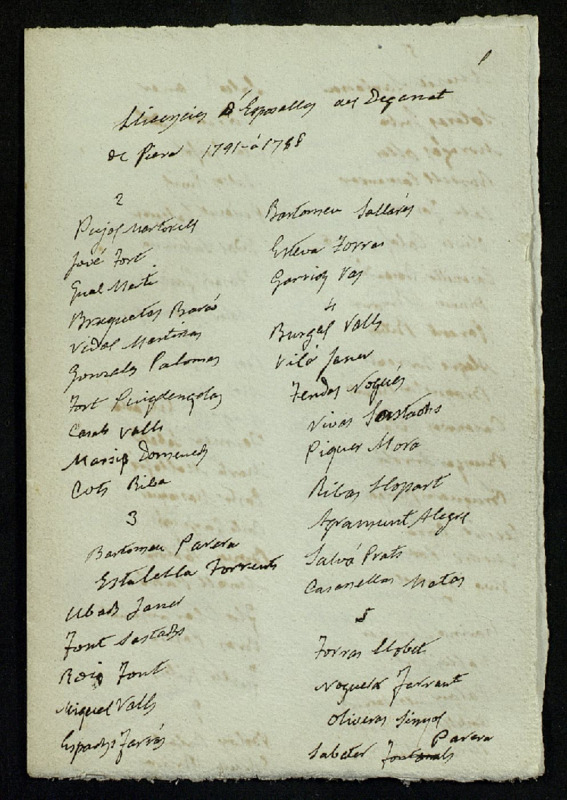 Llicencies d'Esposalles del Deganat
de Piera 1791 a 1798
2
Pujol Martorell
Jové Fort
Gual Marti
Braquetas Baró
Vidal Martinas
Gonzalez Palomas
Fort Puigdengolas
Casals Valls
Massip Domenech
Cots Riba
3
Bartomeu Parera
Estalella Torrents
Ubach Janer
Font Sastachs
Roig Font
Miquel Valls
Espadas Farrés
Bartomeu Sallarés
Esteva Torras
Garriga Vas
4
Burgés Valls
Vila Janer
Fendas Nogués
Vivas Sastachs
Piquer Mora
Ribas Llopart
Agramunt Alegre
Salvá Prats
Casanellas Matas
5
Torras Llobet
Noguera Ferrant
Oliveras Sinyol
Sabater Parera